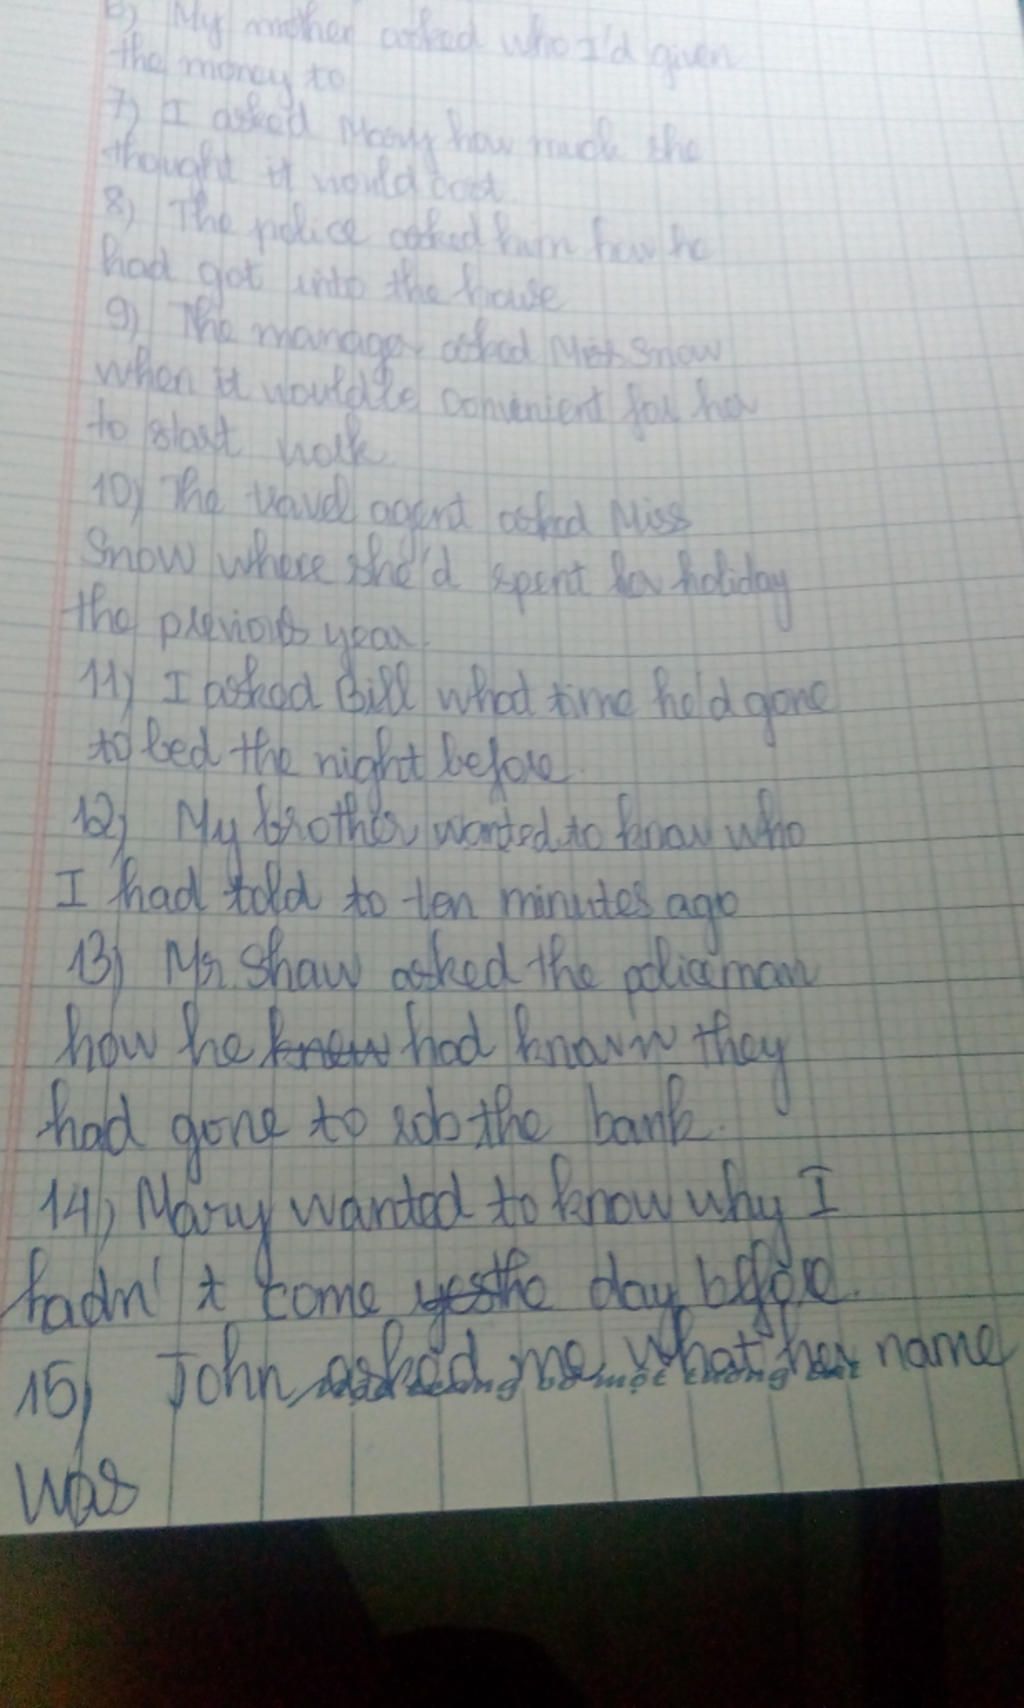 6) My mother asked who I'd given
the money to
7) I asked Mary how much she
thought it would cost
8) The police asked him how he
had got into the house
9) The manager asked Miss Snow
when it would be convenient for her
to start work
10) The travel agent asked Miss
Snow where she'd spent her holiday
the previous year.
11) I asked Bill what time he'd gone
to bed the night before.
12) My brother wanted to know who
I had told to ten minutes ago
13) Mr. Shaw asked the policeman
how he knew had known they
had gone to rob the bank.
14) Mary wanted to know why I
hadn't come yes the day before.
15) John asked me what her name
was